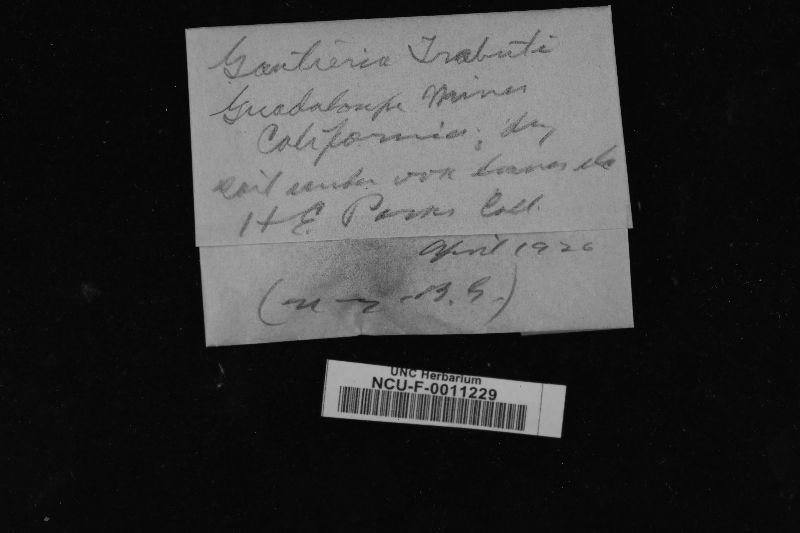 Gautieria Trabuti
Guadaloupe Mines
California; dry
soil under oak leaves etc
H E Parks Coll.
April 1926
(N Y B. G.)
UNC Herbarium
NCU-F-0011229